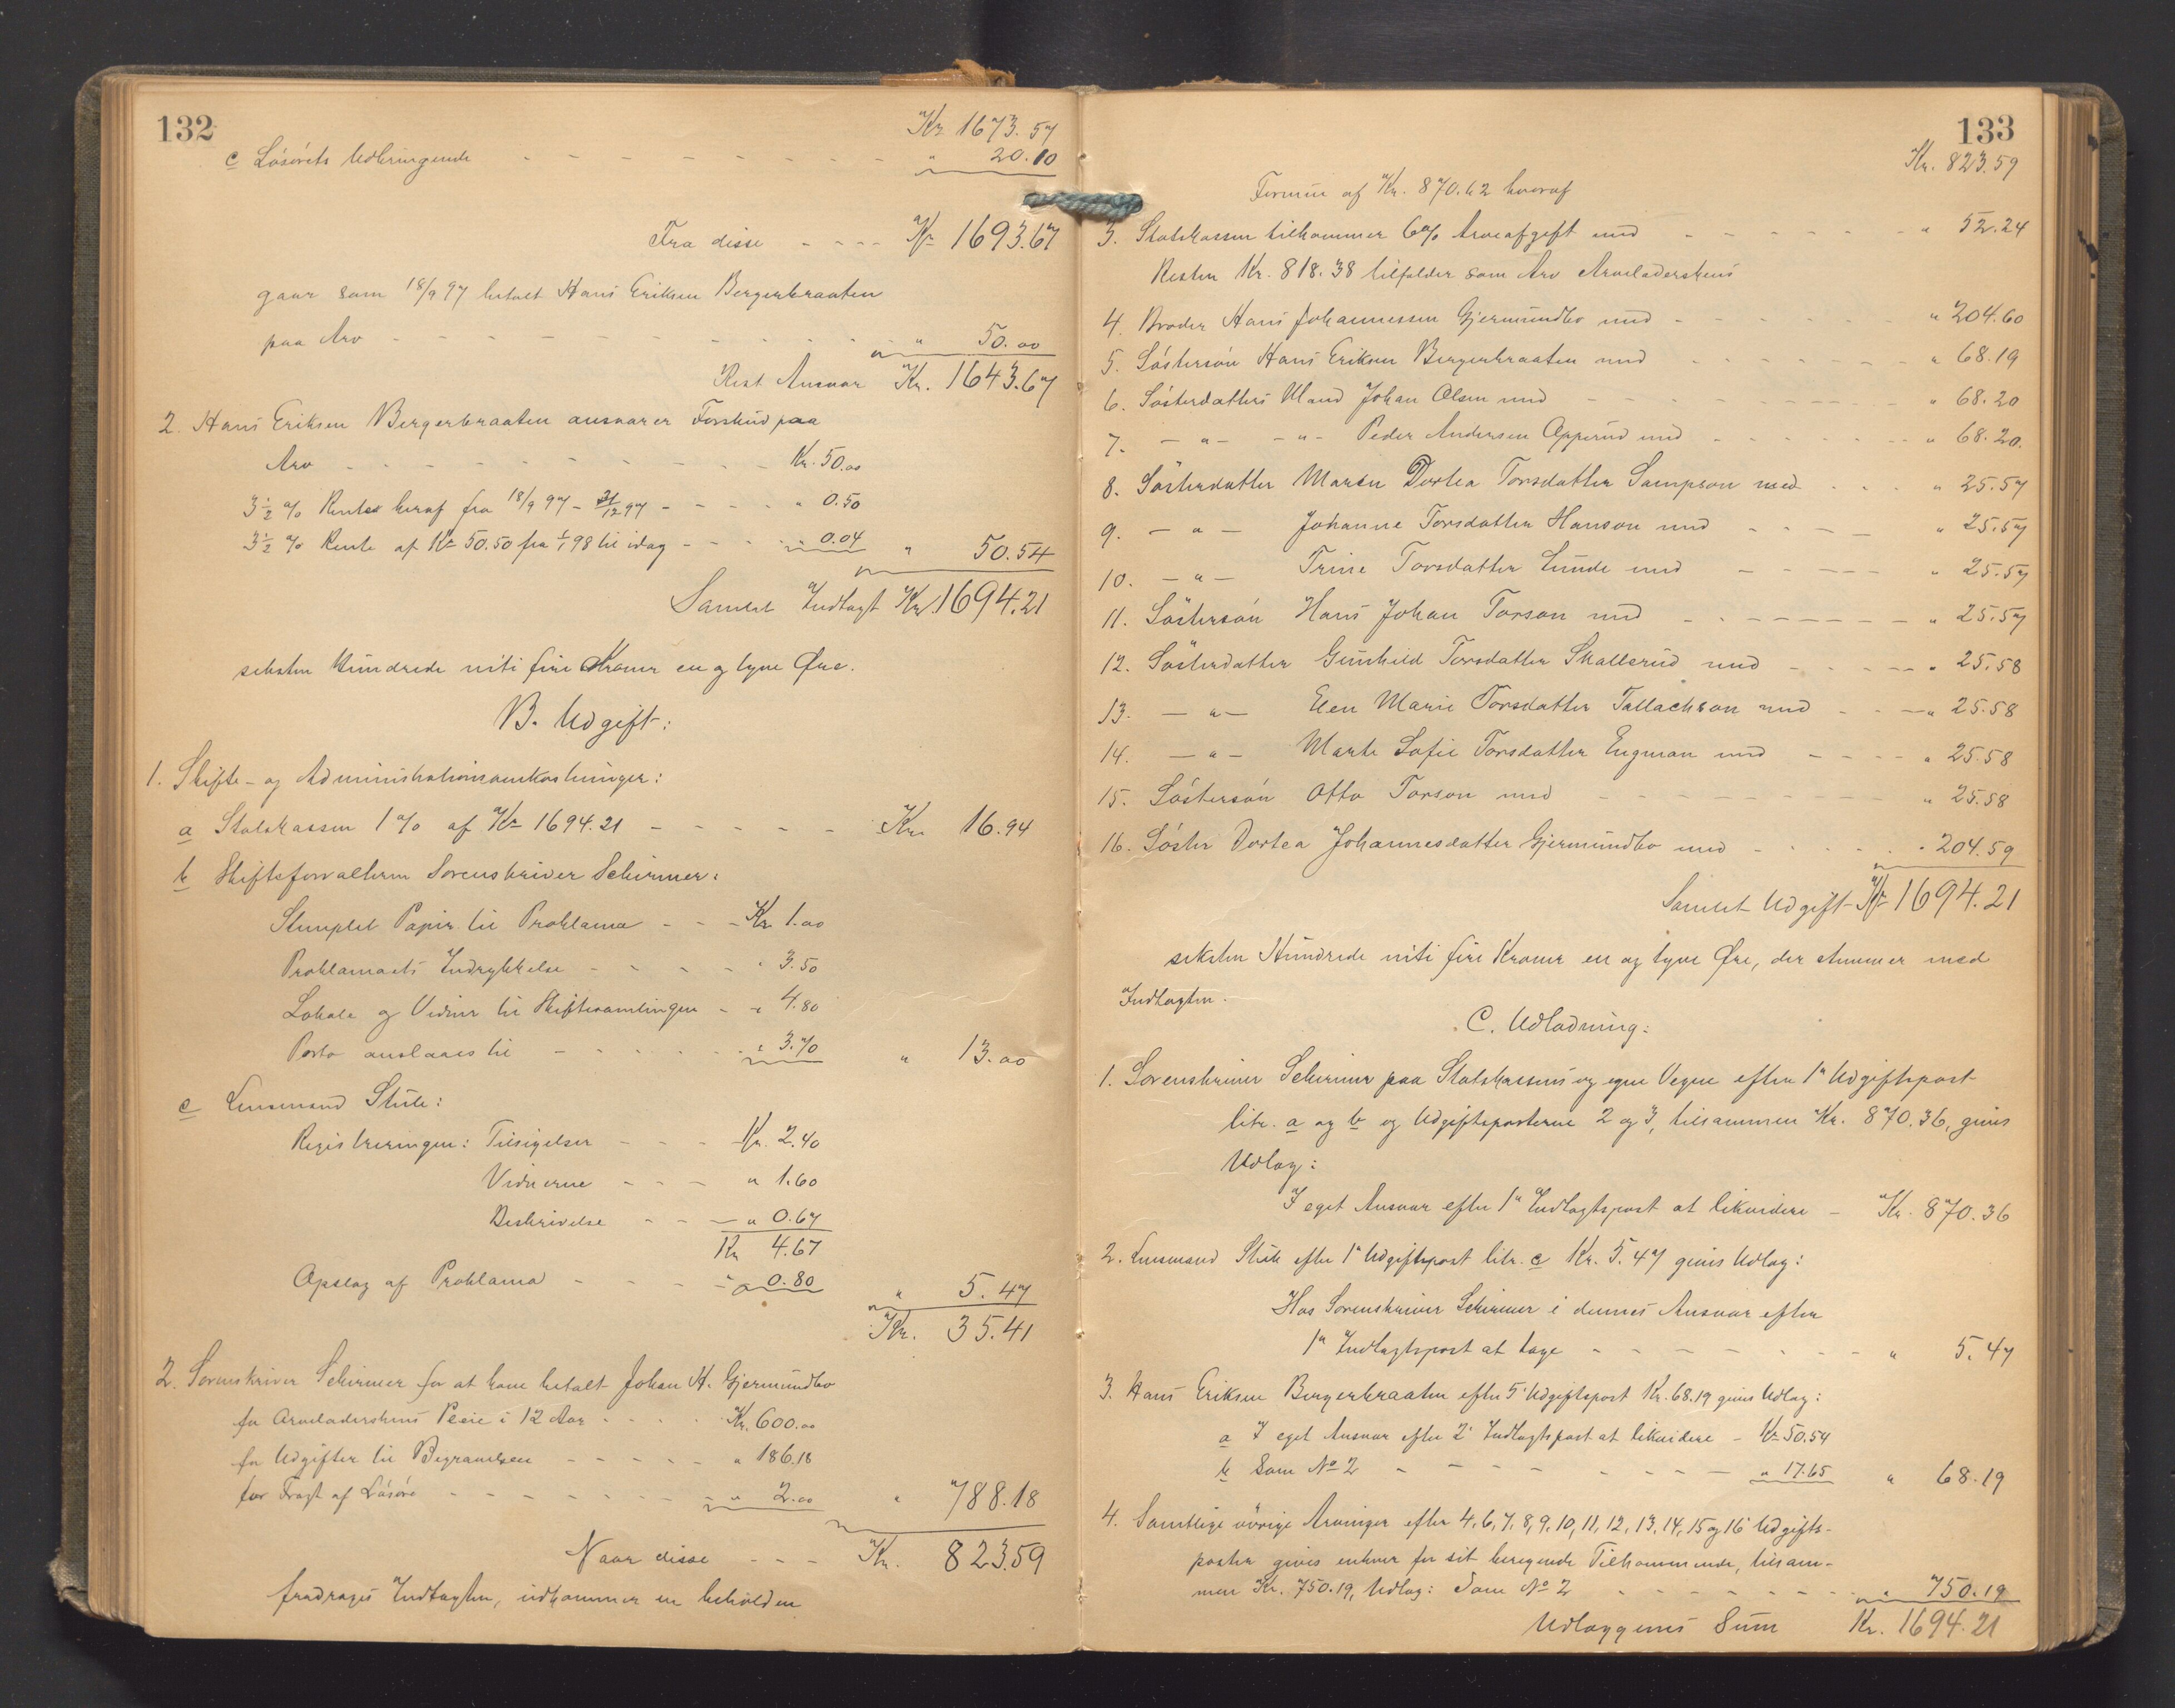 132
Kr 1673.57
c Løsørets Udbringende - - - - - - - - - " 20.10
Fra disse - - - - Kr 1693.67
gaar som 18/9 97 betalt Hans Eriksen Bergerbraaten
paa Arv - - - - - - - - - - " 50.00
Rest Ansvar Kr. 1643.67
2. Hans Eriksen Bergerbraaten ansvarer Forskud paa
Arv - - - - - - - - - Kr. 50.00
3½ % Rente heraf fra 18/9 97 - 31/12 97 - - - - " 0.50
3½ % Rente af Kr 50.50 fra 1/1 98 til idag - - - - " 0.04 " 50.54
Samlet Indtægt Kr. 1694.21
seksten Hundrede niti fire Kroner en og tyve Øre.
B. Udgift:
1. Skifte- og Administrationsomkostninger:
a Statskassen 1 % af Kr 1694.21 - - - - - Kr. 16.94
b Skifteforvalteren Sorenskriver Schirmer:
Stemplet Papir til Proklama - - - Kr 1.00
Proklamaets Indrykkelse - - - - " 3.50
Lokale og Vidner til Skiftesamlingen - " 4.80
Porto anslaaes til - - - - - " 3.70 " 13.00
c Lensmand Stub:
Registreringen: Tilsigelser - - - Kr. 2.40
Vidnerne - - - " 1.60
Beskrivelse - - - " 0.67
Kr 4.67
Opslag af Proklama - - - - " 0.80 " 5.47
Kr. 35.41
2. Sorenskriver Schirmer for at have betalt Johan H. Gjermundbo
for Arveladerskens Pleie i 12 Aar - - - - Kr. 600.00
for Udgifter til Begravelsen - - - - - " 186.18
for Fragt af Løsøre - - - - - - - " 2.00 " 788.18
Naar disse - - - Kr. 823.59
fradrages Indtægten, udkommer en beholden
133
Kr. 823.59
Formue af Kr. 870.62 hvoraf
3. Statskassen tilkommer 6 % Arveafgift med - - - - - - " 52.24
Resten Kr. 818.38 tilfalder som Arv Arveladerskens
4. Broder Hans Johannessen Gjermundbo med - - - - - - - " 204.60
5. Søstersøn Hans Eriksen Bergerbraaten med - - - - - - " 68.19
6. Søsterdatters Mand Johan Olsen med - - - - - - - - " 68.20
7. - " - - " - Peder Andersen Opperud med - - - - - - " 68.20.
8. Søsterdatter Maren Dortea Torsdatter Sampson med - - - " 25.57
9. - " - Johanne Torsdatter Hanson med - - - - " 25.57
10. - " - Trine Torsdatter Lunde med - - - - - " 25.57
11. Søstersøn Hans Johan Torson med - - - - - - - " 25.57
12. Søsterdatter Gunhild Torsdatter Skallerud med - - - - - " 25.58
13. - " - Elen Marie Torsdatter Tallackson med - - - " 25.58
14. - " - Marte Sofie Torsdatter Engman med - - - - " 25.58
15. Søstersøn Otto Torson med - - - - - - - - - " 25.58
16. Søster Dortea Johannesdatter Gjermundbo med - - - - - " 204.59
Samlet Udgift Kr 1694.21
seksten Hundrede niti fire Kroner en og tyve Øre, der stemmer med
Indtægten.
C. Udlodning:
1. Sorenskriver Schirmer paa Statskassens og egne Vegne efter 1ste Udgiftspost
litr. a og b og Udgiftsposterne 2 og 3, tilsammen Kr. 870.36, gives
Udlæg:
I eget Ansvar efter 1ste Indtægtspost at likvidere - Kr. 870.36
2. Lensmand Stub efter 1ste Udgiftspost litr. c Kr. 5.47 gives Udlæg:
Hos Sorenskriver Schirmer i dennes Ansvar efter
1ste Indtægtspost at tage - - - - - - - " 5.47
3. Hans Eriksen Bergerbraaten efter 5' Udgiftspost Kr. 68.19 gives Udlæg:
a I eget Ansvar efter 2' Indtægtspost at likvidere - Kr 50.54
b Som No 2 - - - - - - - - " 17.65 " 68.19
4. Samtlige øvrige Arvinger efter 4, 6, 7, 8, 9, 10, 11, 12, 13, 14, 15 og 16' Udgifts-
poster gives enhver for sit beregnede Tilkommende, tilsam-
men Kr. 750.19, Udlæg: Som No 2 - - - - - - " 750.19
Udlæggenes Sum Kr. 1694.21